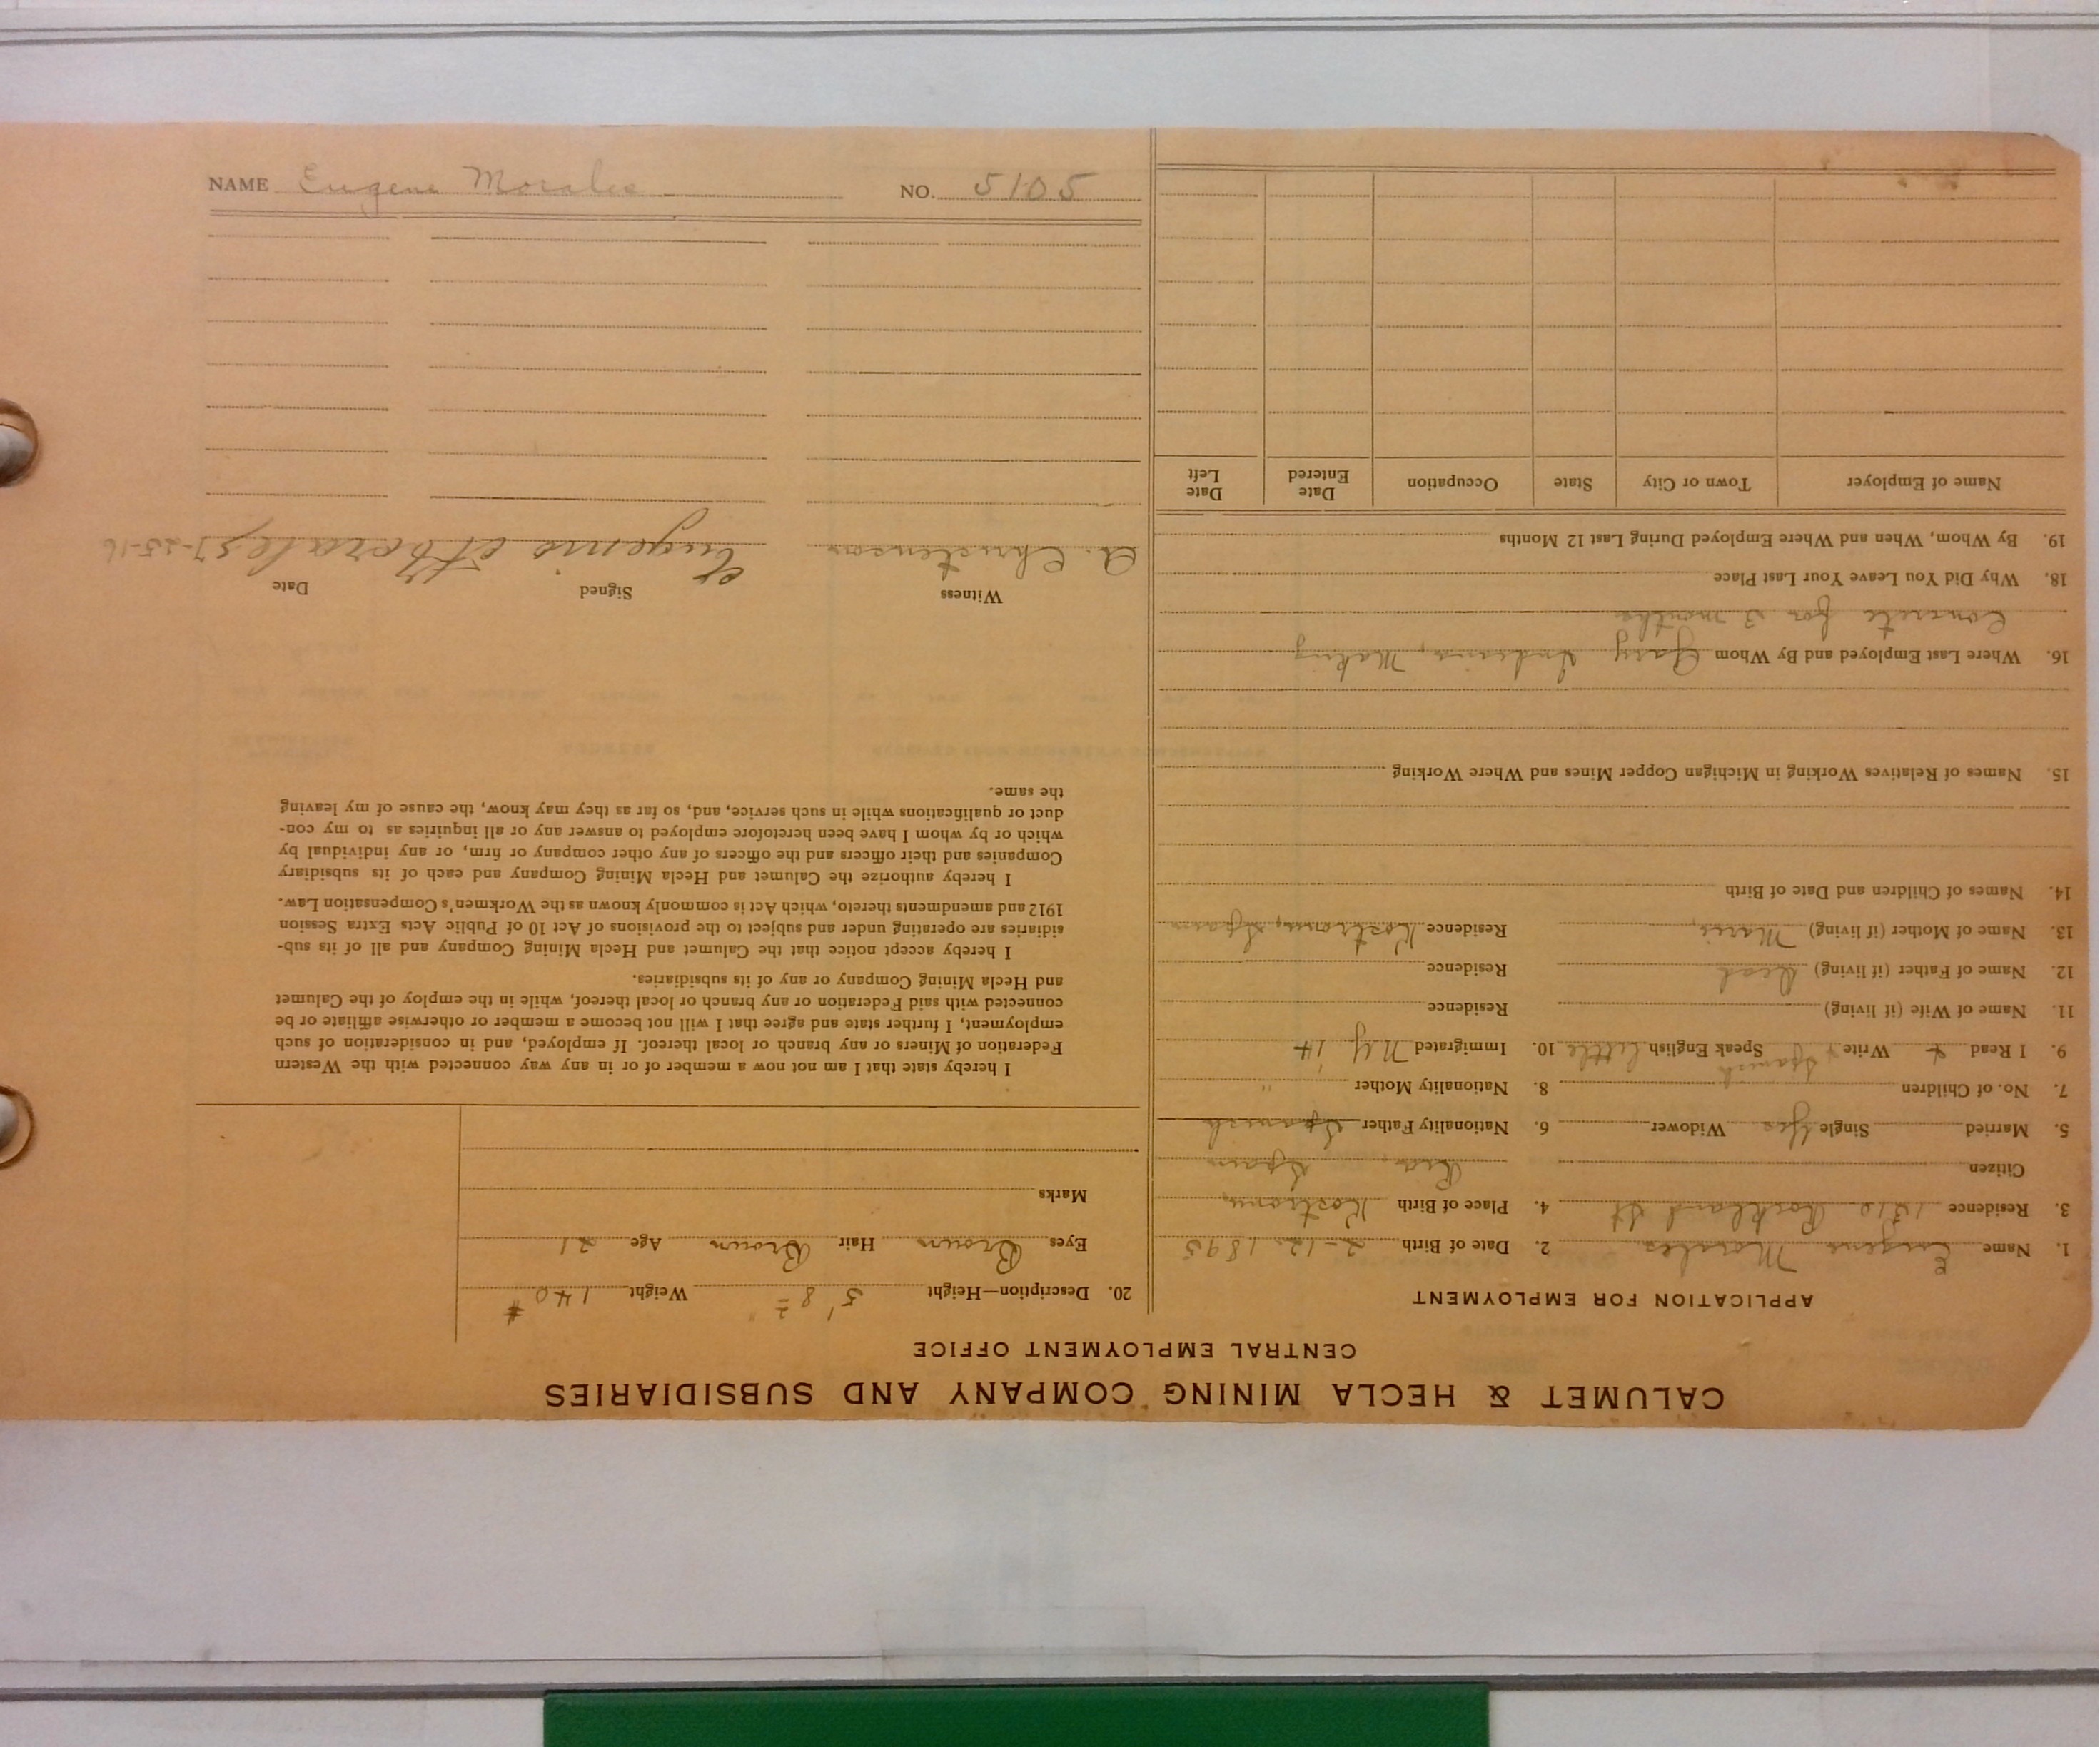 CALUMET & HECLA MINING COMPANY AND SUBSIDIARIES
CENTRAL EMPLOYMENT OFFICE
APPLICATION FOR EMPLOYMENT
1. Name Eugene Morales 2. Date of Birth 2-12-1895
3. Residence 1210 Rockland St 4. Place of Birth
Citizen Spain
5. Married Single Yes Widower 6. Nationality Father Spanish
7. No. of Children 8. Nationality Mother "
9. I Read Write Spanish Speak English little 10. Immigrated NY 14
11. Name of Wife (if living) Residence
12. Name of Father (if living) Dead Residence
13. Name of Mother (if living) Residence Spain
14. Names of Children and Date of Birth
15. Names of Relatives Working in Michigan Copper Mines and Where Working
16. Where Last Employed and By Whom Gary Indiana, Making
Concrete for 3 months
18. Why Did You Leave Your Last Place
19. By Whom, When and Where Employed During Last 12 Months
Name of Employer Town or City State Occupation Date Entered Date Left
20. Description—Height 5' 8 Weight 140 #
Eyes Brown Hair Brown Age 21
Marks
I hereby state that I am not now a member of or in any way connected with the Western
Federation of Miners or any branch or local thereof. If employed, and in consideration of such
employment, I further state and agree that I will not become a member or otherwise affiliate or be
connected with said Federation or any branch or local thereof, while in the employ of the Calumet
and Hecla Mining Company or any of its subsidiaries.
I hereby accept notice that the Calumet and Hecla Mining Company and all of its sub-
sidiaries are operating under and subject to the provisions of Act 10 of Public Acts Extra Session
1912 and amendments thereto, which Act is commonly known as the Workmen's Compensation Law.
I hereby authorize the Calumet and Hecla Mining Company and each of its subsidiary
Companies and their officers and the officers of any other company or firm, or any individual by
which or by whom I have been heretofore employed to answer any or all inquiries as to my con-
duct or qualifications while in such service, and, so far as they may know, the cause of my leaving
the same.
Witness Signed Date
A. Christensen Eugenio Morales 7-25-16
NAME Eugene Morales NO. 5105